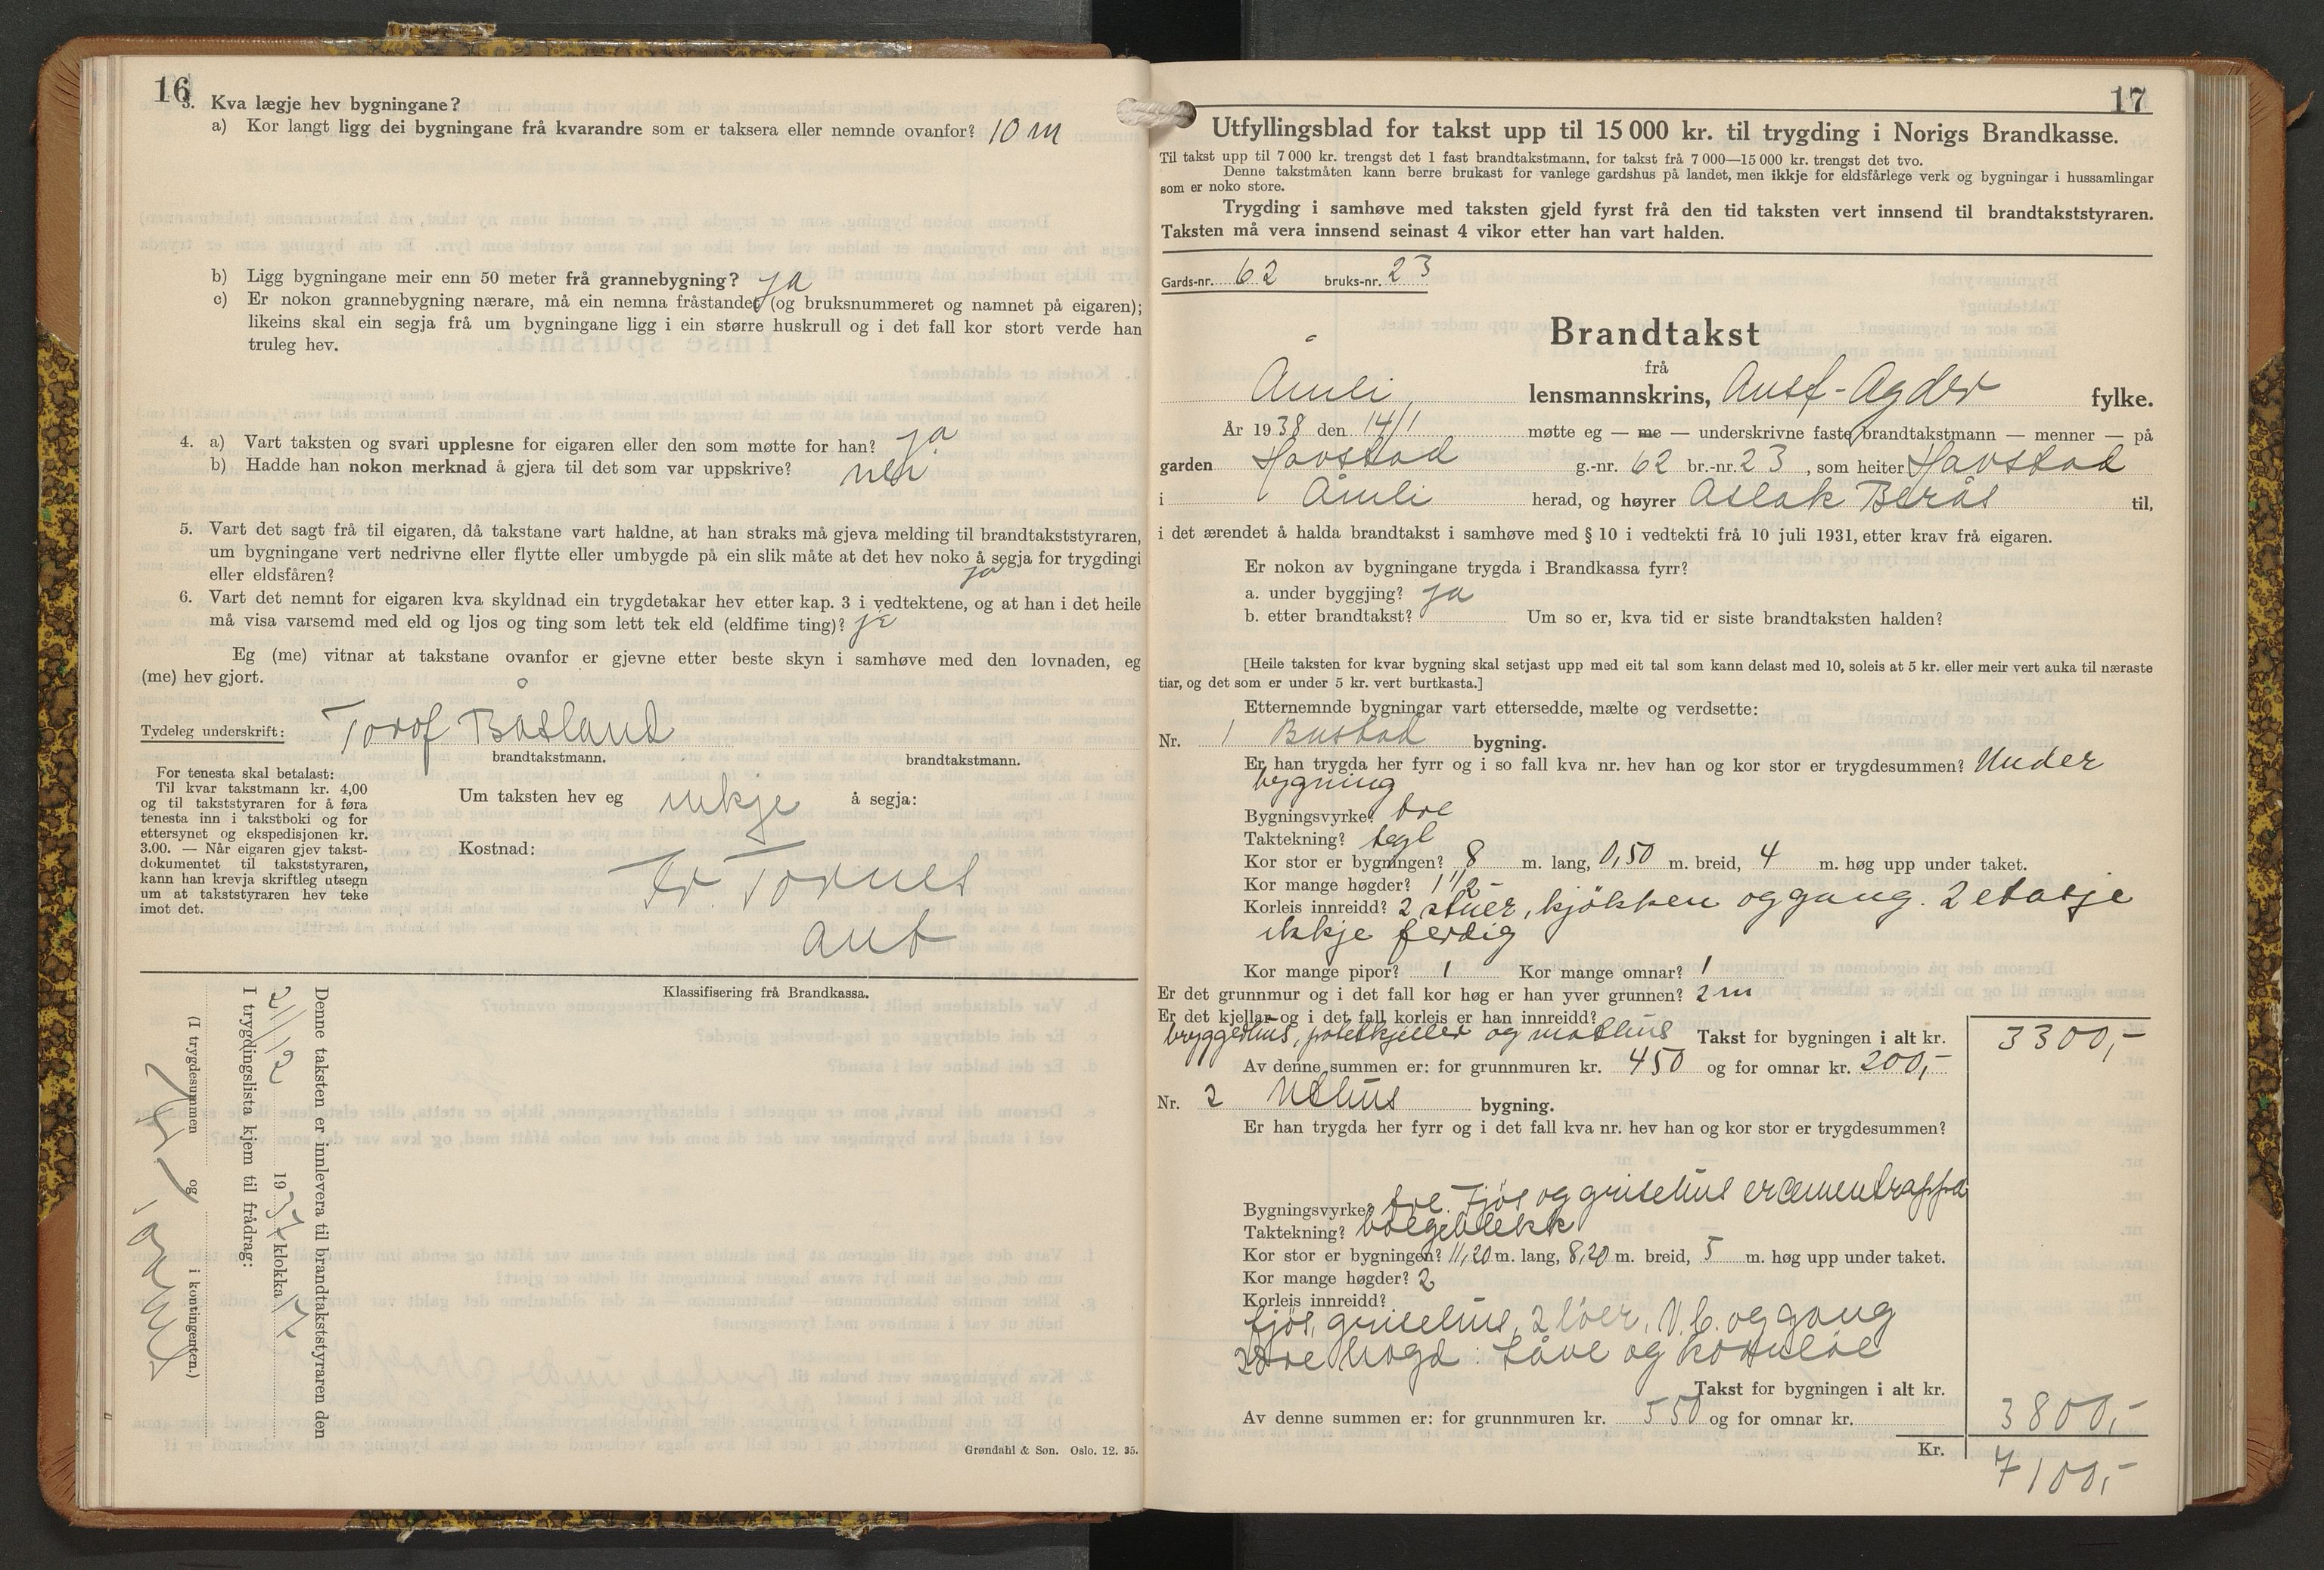 16
3. Kva lægje hev bygningane?
a) Kor langt ligg dei bygningane frå kvarandre som er taksera eller nemnde ovanfor? 10 m
b) Ligg bygningane meir enn 50 meter frå grannebygning? ja
c) Er nokon grannebygning nærare, må ein nemna fråstandet (og bruksnummeret og namnet på eigaren);
likeins skal ein segja frå um bygningane ligg i ein større huskrull og i det fall kor stort verde han
truleg hev.
4. a) Vart taksten og svari upplesne for eigaren eller den som møtte for han? ja
b) Hadde han nokon merknad å gjera til det som var uppskrive? nei
5. Vart det sagt frå til eigaren, då takstane vart haldne, at han straks må gjeva melding til brandtakststyraren,
um bygningane vert nedrivne eller flytte eller umbygde på ein slik måte at det hev noko å segja for trygdingi
eller eldsfåren? ja
6. Vart det nemnt for eigaren kva skyldnad ein trygdetakar hev etter kap. 3 i vedtektene, og at han i det heile
må visa varsemd med eld og ljos og ting som lett tek eld (eldfime ting)? ja
Eg (me) vitnar at takstane ovanfor er gjevne etter beste skyn i samhøve med den lovnaden, eg
(me) hev gjort.
Tydeleg underskrift: Torof Båsland
brandtakstmann. brandtakstmann.
For tenesta skal betalast:
Til kvar takstmann kr. 4,00
og til takststyraren for å føra
tenesta inn i takstboki og for
ettersynet og ekspedisjonen kr.
3.00. — Når eigaren gjev takst-
dokumentet til takststyraren,
kann han krevja skriftleg utsegn
um at takststyraren hev teke
imot det.
Um taksten hev eg inkje å segja:
Kostnad:
Fr. Tornes
aut
Klassifisering frå Brandkassa.
Denne taksten er innlevera til brandtakststyraren den
21/12 1937 klokka 17
I trygdingslista kjem til frådrag:
(I trygdesummen og i kontingenten.)
Grøndahl & Søn. Oslo. 12. 35.
17
Utfyllingsblad for takst upp til 15 000 kr. til trygding i Norigs Brandkasse.
Til takst upp til 7 000 kr. trengst det 1 fast brandtakstmann, for takst frå 7 000—15 000 kr. trengst det tvo.
Denne takstmåten kann berre brukast for vanlege gardshus på landet, men ikkje for eldsfårlege verk og bygningar i hussamlingar
som er noko store.
Trygding i samhøve med taksten gjeld fyrst frå den tid taksten vert innsend til brandtakststyraren.
Taksten må vera innsend seinast 4 vikor etter han vart halden.
Gards-nr. 62 bruks-nr. 23
Brandtakst
frå
Åmli lensmannskrins, Aust-Agder fylke.
År 1938 den 14/1 møtte eg — me — underskrivne faste brandtakstmann — menner — på
garden Hovstad g.-nr. 62 br.-nr. 23, som heiter Havstad
i Åmli herad, og høyrer Aslak Berås til,
i det ærendet å halda brandtakst i samhøve med § 10 i vedtekti frå 10 juli 1931, etter krav frå eigaren.
Er nokon av bygningane trygda i Brandkassa fyrr?
a. under byggjing? ja
b. etter brandtakst? Um so er, kva tid er siste brandtaksten halden?
[Heile taksten for kvar bygning skal setjast upp med eit tal som kann delast med 10, soleis at 5 kr. eller meir vert auka til næraste
tiar, og det som er under 5 kr. vert burtkasta.]
Etternemnde bygningar vart ettersedde, mælte og verdsette:
Nr. 1 Bustad bygning.
Er han trygda her fyrr og i so fall kva nr. hev han og kor stor er trygdesummen? Under
bygning
Bygningsvyrke? tre
Taktekning? tegl
Kor stor er bygningen? 8 m. lang, 0,50 m. breid, 4 m. høg upp under taket.
Kor mange høgder? 1 1/2 -
Korleis innreidd? 2 stuer, kjökken og gang. 2 etasje
ikkje ferdig
Kor mange pipor? 1 Kor mange omnar? 1
Er det grunnmur og i det fall kor høg er han yver grunnen? 2 m
Er det kjellar og i det fall korleis er han innreidd?
bryggerhus, potetkjeller og mathus Takst for bygningen i alt kr. 3300,-
Av denne summen er: for grunnmuren kr. 450 og for omnar kr. 200,-
Nr. 2 Uthus bygning.
Er han trygda her fyrr og i det fall kva nr. hev han og kor stor er trygdesummen?
Bygningsvyrke? tre. Fjös og grisehus er cementrappa
Taktekning? bølgeblekk
Kor stor er bygningen? 11,20 m. lang, 8,20 m. breid, 5 m. høg upp under taket.
Kor mange høgder? 2
Korleis innreidd?
fjös, grisehus, 2 löer, V.C. og gang
2dre høgd: Låve og kornlöe
Takst for bygningen i alt kr.
Av denne summen er: for grunnmuren kr. 550 og for omnar kr. 3800,-
Kr. 7100,-